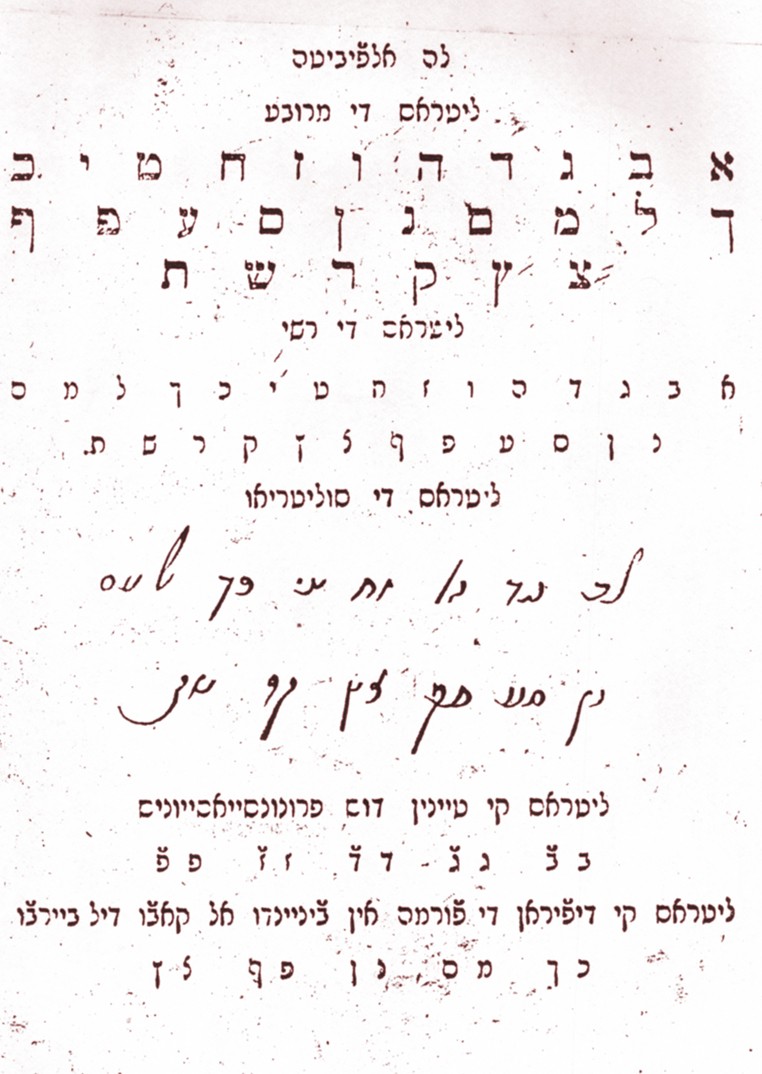 לה אלפֿיביטה
ליטראס די מרובע
א ב ג ד ה ו ז ח ט י כ
ך ל מ ם נ ן ס ע פ ף
צ ץ ק ר ש ת
ליטראס די רשי
א ב ג ד ה ו ז ח ט י כ ך ל מ ם
נ ן ס ע פ ף צ ץ ק ר ש ת.
ליטראס די סוליטריאו
אב גד הו זח טי כך למם
נן סע פף צץ קר שת
ליטראס קי טיינין דוס פרונונסייאסייוניס
ב בֿ ג גֿ ד דֿ ז זֿ פ פֿ
ליטראס קי דיפֿיראן די פֿורמה אין בֿיניינדו אל קאבֿו דיל ביירבֿו
כ ך מ ם נ ן פ ף צ ץ